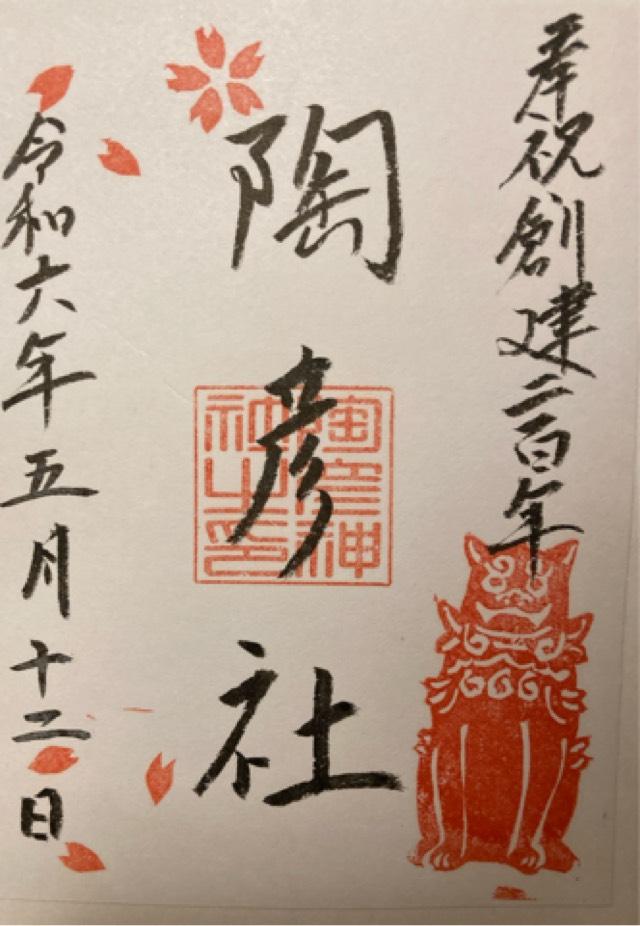 奉祝創建二百年
陶彦社
陶彦神社之印
令和六年五月十二日